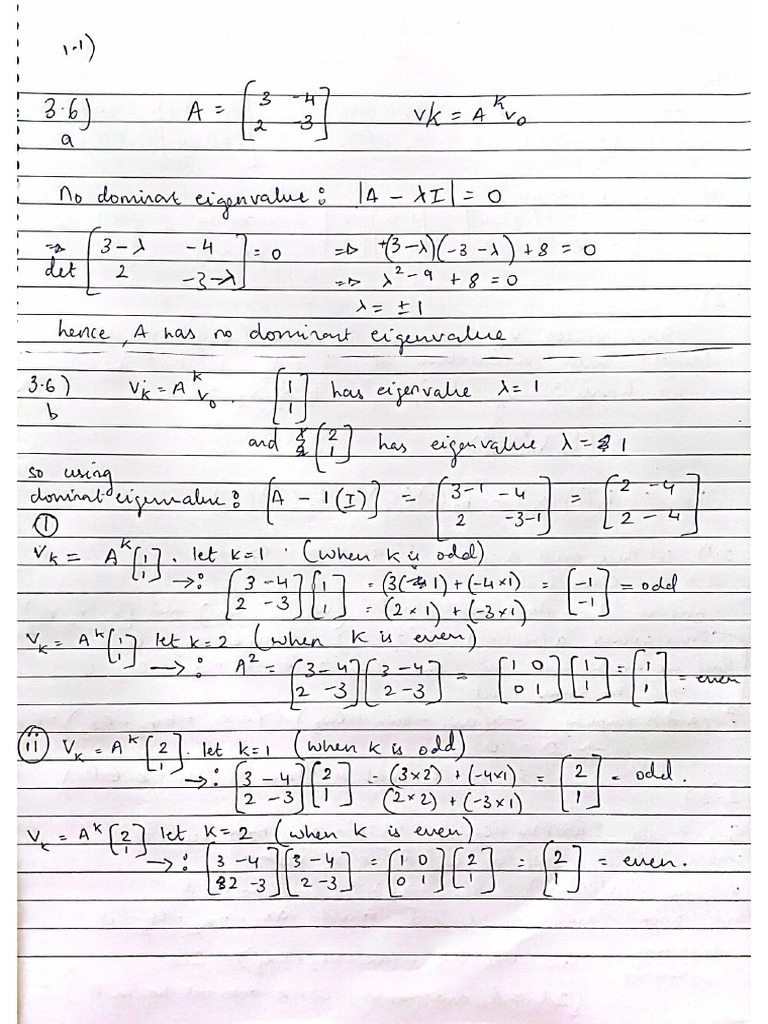 1.1)
3.6) A = [3 -4; 2 -3] Vk = A^k v₀
a
No dominant eigenvalue: |A - λI| = 0
⇒ det [3-λ -4; 2 -3-λ] = 0 ⇒ +(3-λ)(-3-λ) + 8 = 0
⇒ λ² - 9 + 8 = 0
λ = ±1
hence, A has no dominant eigenvalue
3.6) V_k = A^k v₀. [1; 1] has eigenvalue λ = 1
b
and [2; 1] has eigenvalue λ = 1
so using
dominant eigenvalue: [A - 1(I)] = [3-1 -4; 2 -3-1] = [2 -4; 2 -4]
(i)
V_k = A^k [1; 1]. let k=1. (when k is odd)
→: [3 -4; 2 -3] [1; 1] = (3(1) + (-4×1) = (2×1) + (-3×1) = [-1; -1] = odd
V_k = A^k [1; 1] let k=2 (when k is even)
→: A² = [3 -4; 2 -3] [3 -4; 2 -3] = [1 0; 0 1] [1; 1] = [1; 1] = even
(ii) V_k = A^k [2; 1]. let k=1 (when k is odd)
→: [3 -4; 2 -3] [2; 1] = (3×2) + (-4×1) (2×2) + (-3×1) = [2; 1] = odd.
V_k = A^k [2; 1] let k=2 (when k is even)
→: [3 -4; 2 -3] [3 -4; 2 -3] = [1 0; 0 1] [2; 1] = [2; 1] = even.